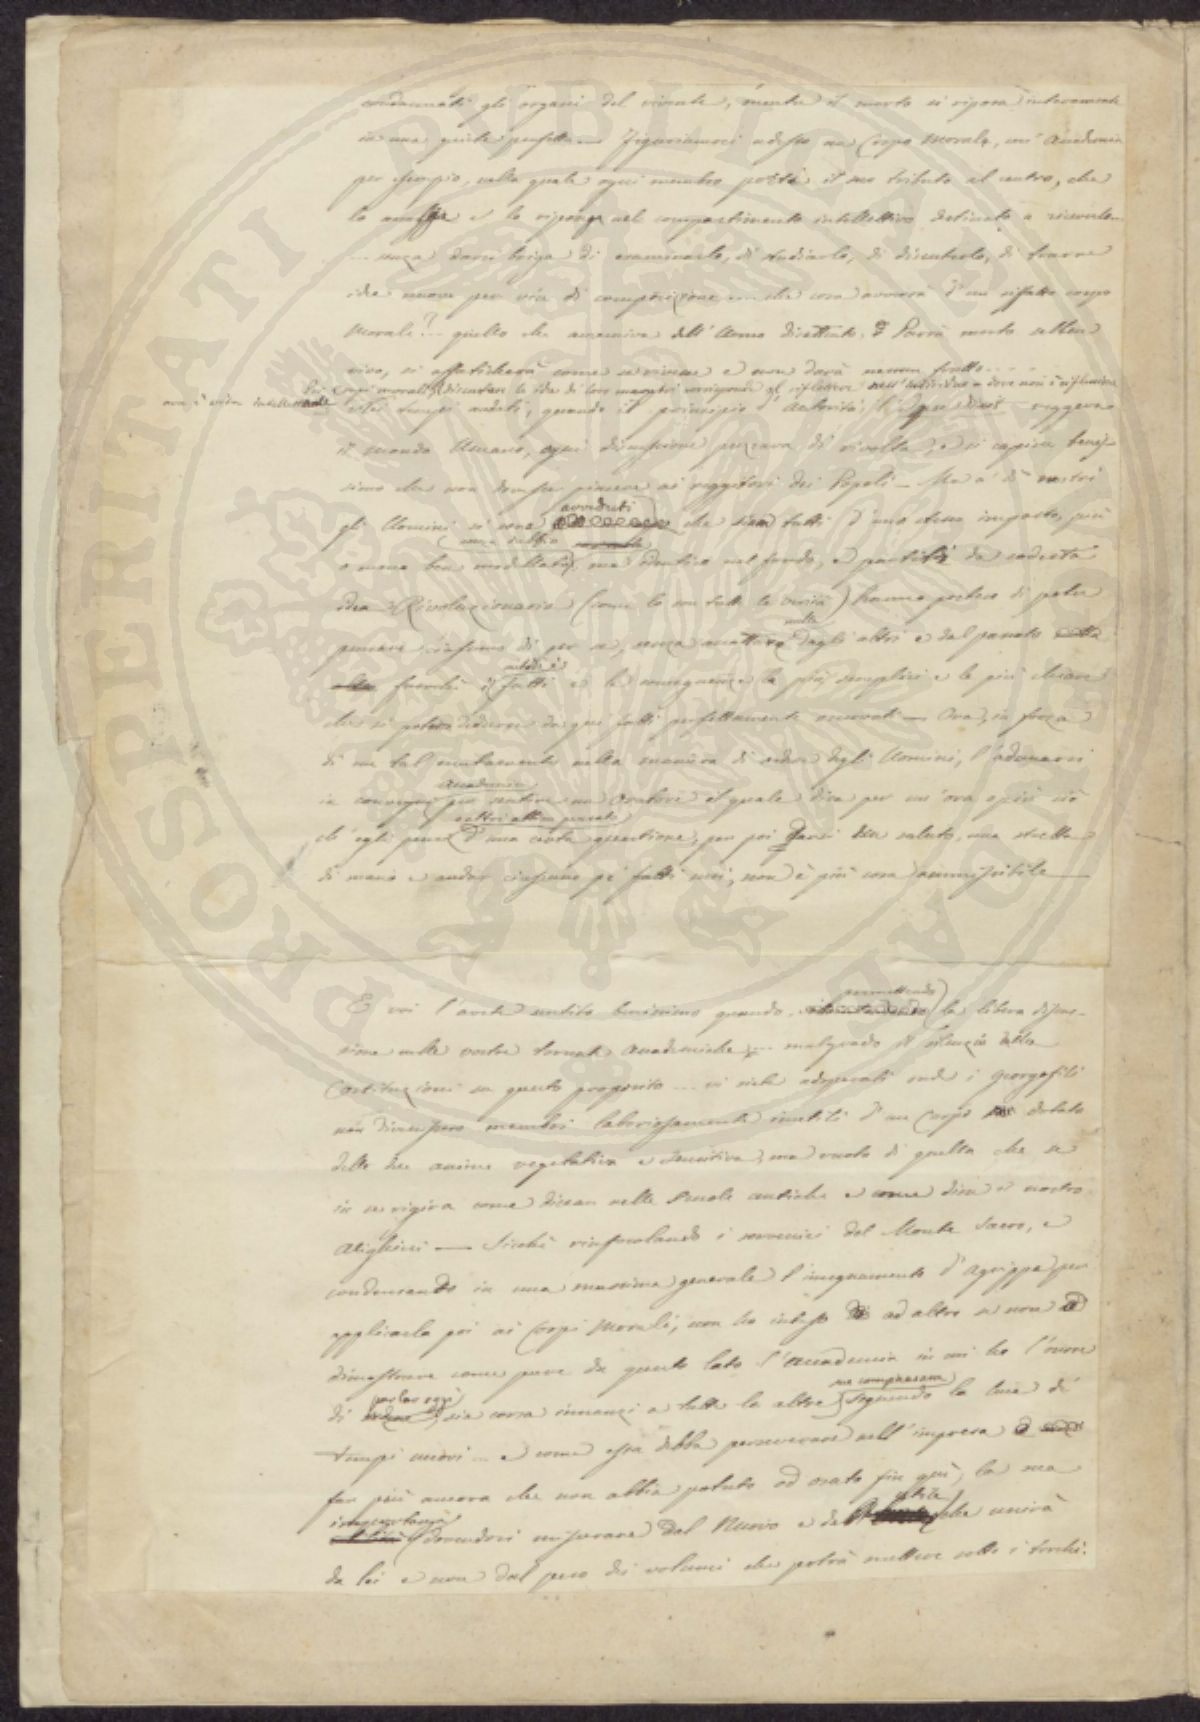 condannati gli organi del vivente, mentre il morto si riposa interamente
in una quiete perfetta — Figuriamoci adesso un Corpo Morale, un' Accademia
per esempio, nella quale ogni membro porti il suo tributo al centro, che
lo ammassa e lo ripone nel compartimento intellettivo destinato a riceverlo
... senza darsi briga di esaminarlo, di studiarlo, di discuterlo, di trarne
idee nuove per via di composizione ... che cosa avverrà d' un siffatto corpo
Morale? ... quello che avveniva dell' Uomo Parrà morto sebben
vivo, si affaticherà come se vivesse e non darà nessun frutto ....
Pei Corpi morali, discutere le idee di loro membri corrisponde al riflettere nell' individuo e dove non è riflessione
non è vita intellettuale
Nei tempi andati, quando il principio d' Autorità, l' ipse dixit reggevano
il mondo Umano, ogni discussione puzzava di rivolta, e si capisce benis-
simo che non dovesse piacere ai reggitori dei Popoli — Ma a' dì nostri
avveduti
gli Uomini si sono che sian tutti d' una stessa impasto, più
senza dubbio
o meno ben modellati, ma identico nel fondo, e partiti da codesta
idea Rivoluzionaria (come lo son tutte le verità) hanno preteso di poter
nulla
pensare ciascuno di per se, senza accettare dagli altri e dal passato
fuorchè i fatti e le conseguenze le più semplici e le più chiare
che si potean dedurre da quei fatti perfettamente accertati — Ora, in forza
di un tal mutamento nella maniera di vedere degli Uomini, l' adunarsi
Accademia
in convegni per sentire un Oratore il quale dica per un' ora o più ciò
e altri abbia pensato
ch' egli pensa d' una certa questione, per poi darsi un saluto, una stretta
di mano e andar ciascuno pe' fatti suoi, non è più cosa ammissibile —
permettendo
E voi l' avete sentito benissimo quando la libera discus-
sione nelle vostre tornate Accademiche ... malgrado il silenzio delle
Costituzioni su questo proposito ... vi siete adoperati onde i Georgofili
non divenissero membri laboriosamente inutili d' un Corpo dotato
delle due anime vegetativa e sensitiva, ma vuoto di quella che se
in se rigira come dicean nelle Scuole antiche e come dice il nostro
Alighieri — Sicchè rinfrescolando i sovvenirsi del Monte Sacro, e
condensando in una massima generale l' insegnamento d' Agrippa per
applicarla poi ai Corpi Morali, non ho inteso ad altro se non
dimostrare come pure da questo lato l' Accademia in cui ho l' onore
parlar oggi sua compiacenza
di sia corsa innanzi a tutte le altre seguendo la luce de'
tempi nuovi — e come essa debba perseverare nell' impresa e
far più ancora che non abbia potuto od osato fin quì, la sua
importanza utile
dovendosi misurare dal Nuovo e dall' che uscirà
da lei e non dal peso dei volumi che potrà mettere sotto i torchi.
PROSPERITATI PUBLICAE AUGENDAE